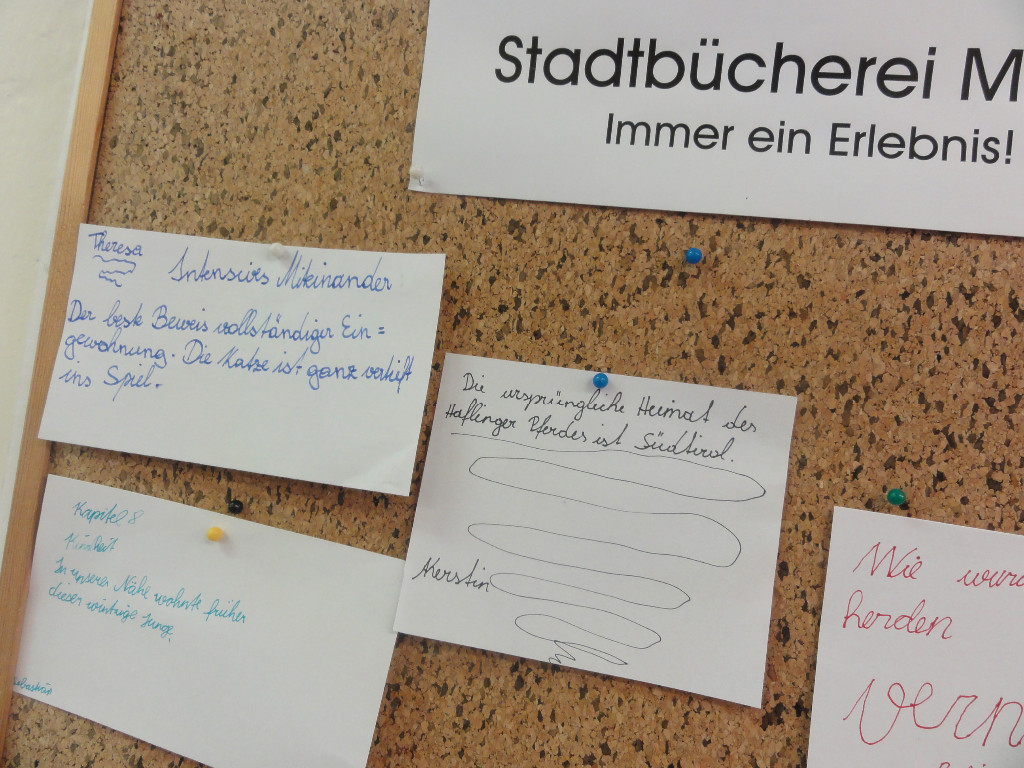 Stadtbücherei M
Immer ein Erlebnis!
Theresa
Intensives Miteinander
Der beste Beweis vollständiger Ein=
gewöhnung. Die Katze ist ganz vertieft
ins Spiel.
Die ursprüngliche Heimat des
Haflinger Pferdes ist Südtirol.
Kerstin
Kapitel 8
In unserer Nähe wohnte früher
dieser winzige Junge.
Wie
herden